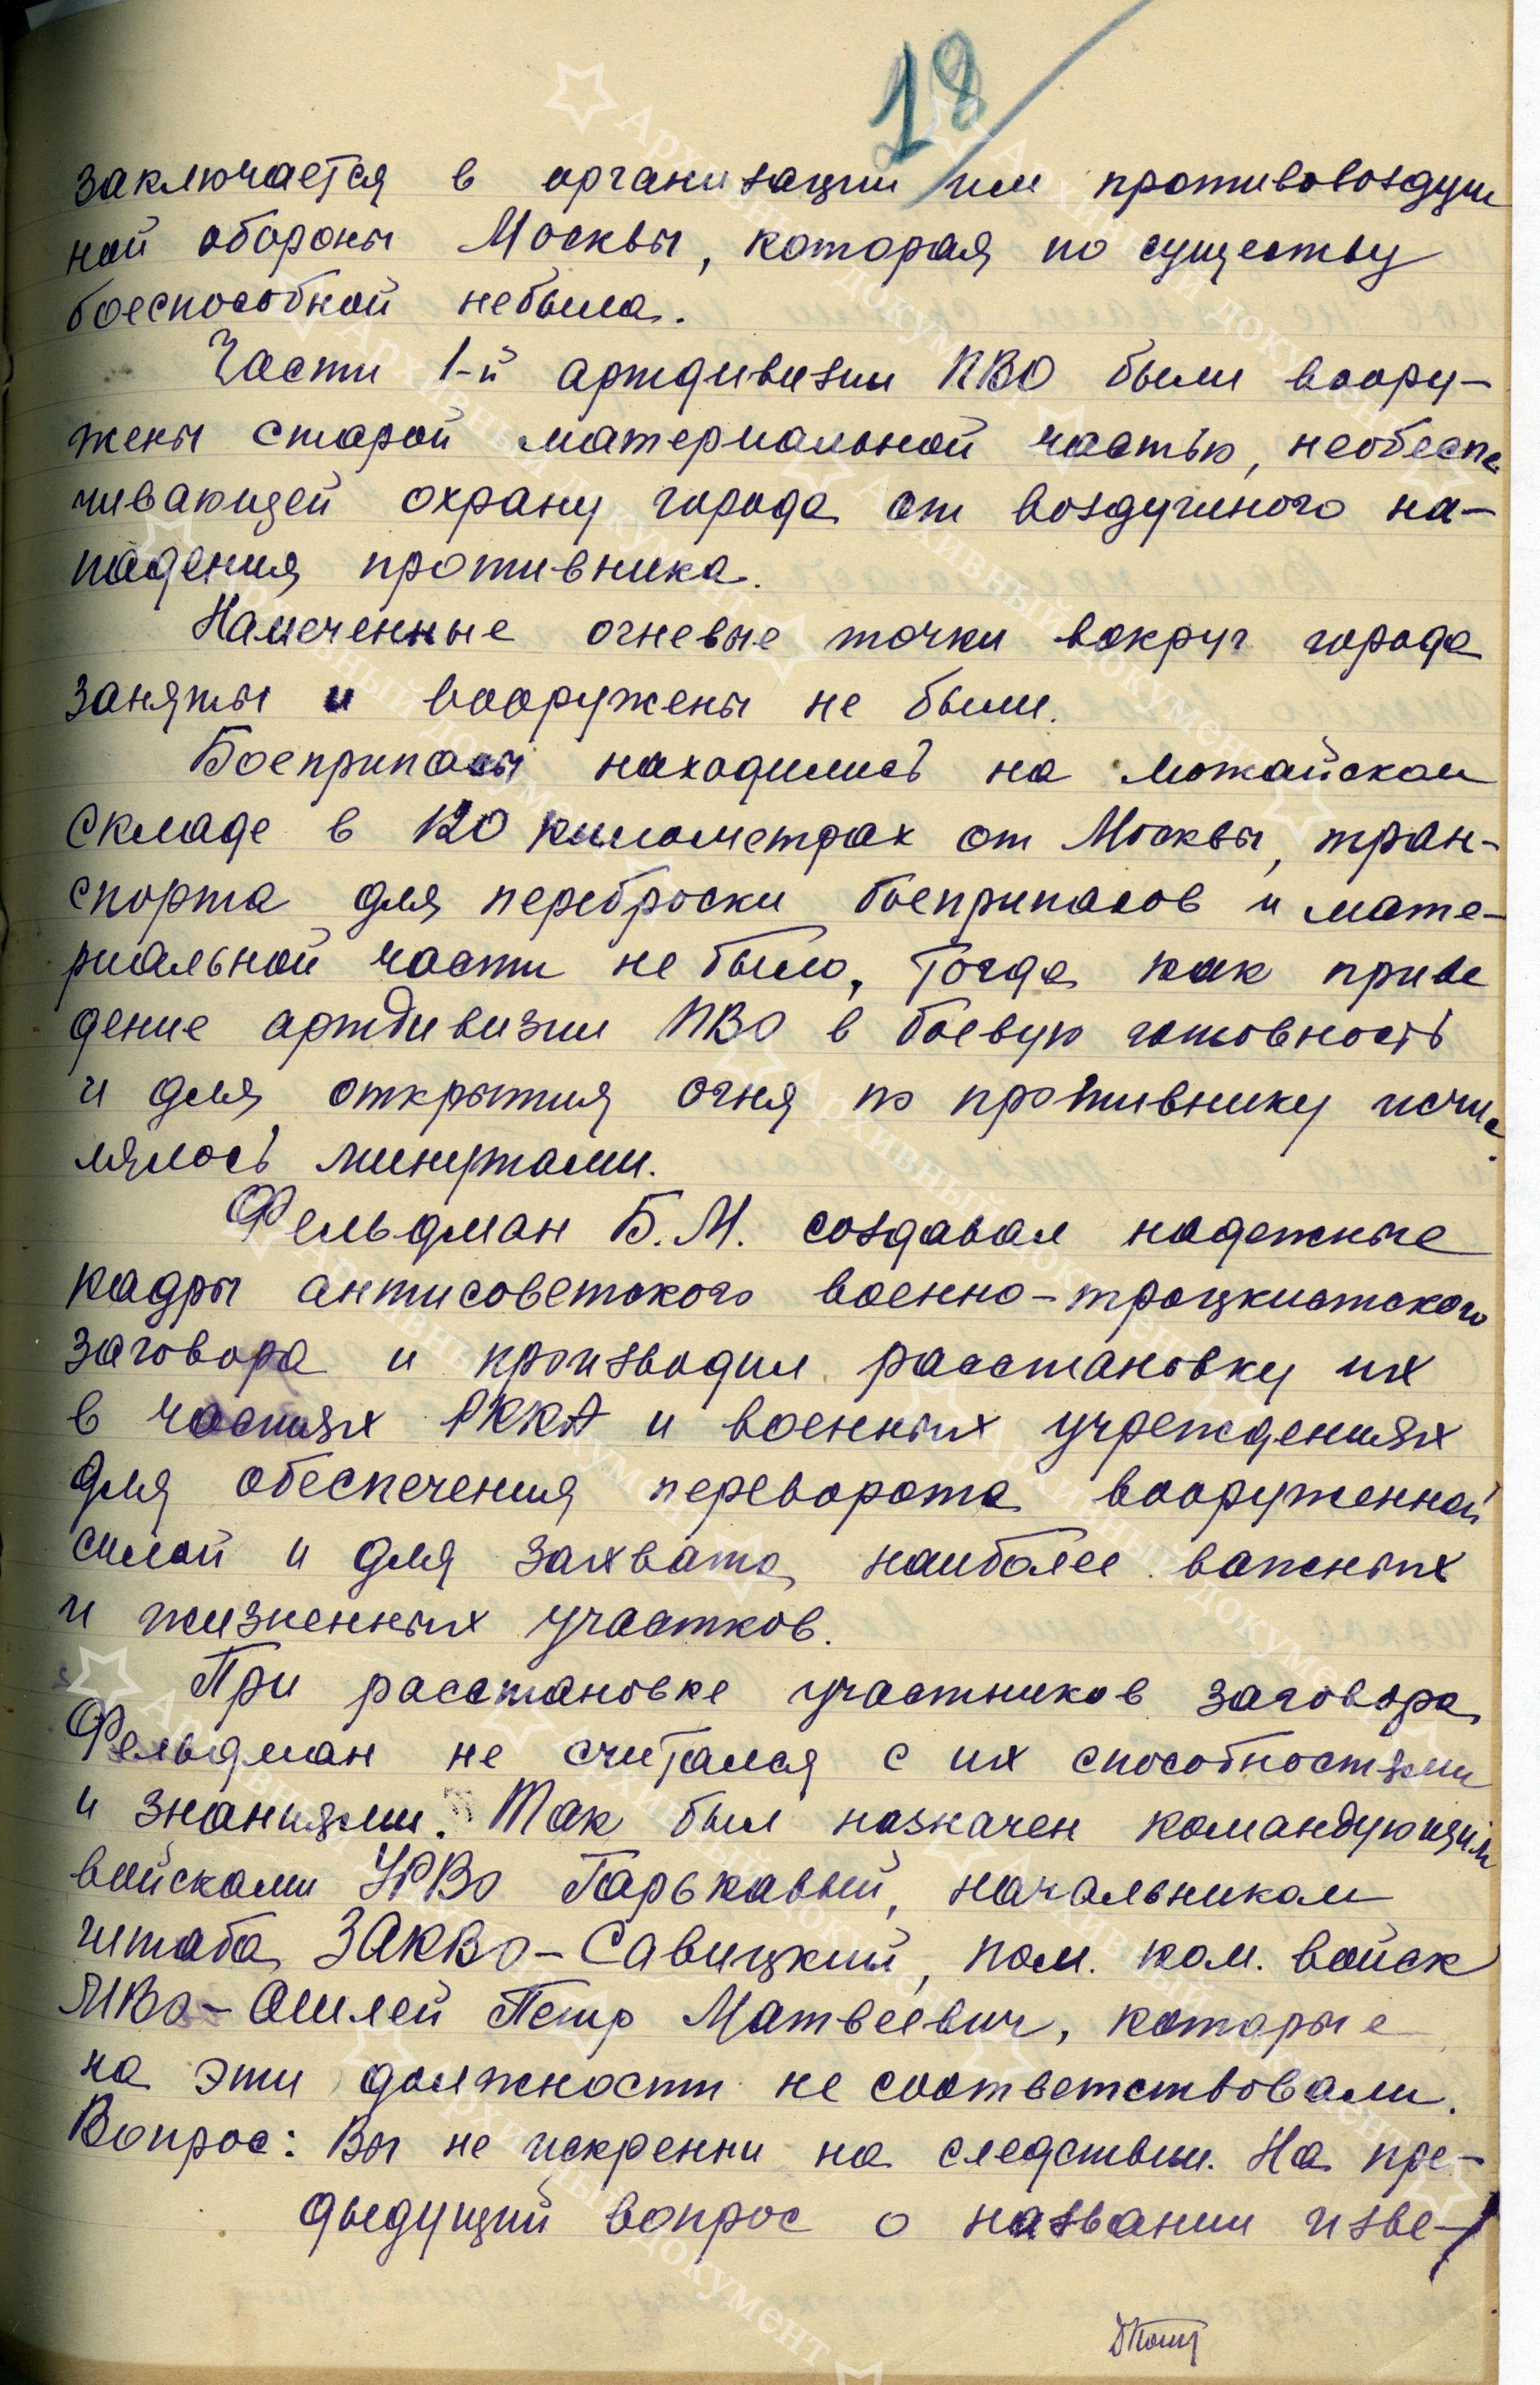 18
заключается в организации им противовоздуш
ной обороны Москвы, которая по существу
боеспособной небыла.
Части 1-й артдивизии ПВО были воору-
жены старой материальной частью, необеспе
чивающей охрану города от воздушного на-
падения противника.
Намеченные огневые точки вокруг города
заняты и вооружены не были.
Боеприпасы находились на можайском
складе в 120 километрах от Москвы, тран-
спорта для переброски боеприпасов и мате-
риальной части не было, тогда как приве
дение артдивизии ПВО в боевую готовность
и для открытия огня по противнику исчис
лялось минутами.
Фельдман Б.М. создавал надежные
кадры антисоветского военно-троцкистского
заговора и производил расстановку их
в частях РККА и военных учреждениях
для обеспечения переворота вооруженной
силой и для захвата наиболее важных
и жизненных участков.
При расстановке участников заговора
Фельдман не считался с их способностями
и знаниями. Так был назначен командующим
войсками УРВО Гарькавый, начальником
штаба ЗАКВО - Савицкий, пом. ком. войск
МВО - Ошлей Петр Матвеевич, которые
на эти должности не соответствовали.
Вопрос: Вы не искренни на следствии. На пре-
дыедущий вопрос о названии изве-